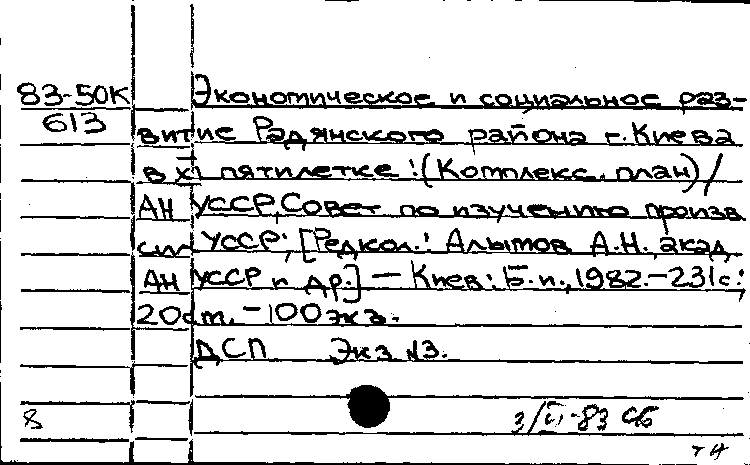 83-50К Экономическое и социальное раз-
613 витие Радянского района г. Киева
в XI пятилетке : (Комплекс. план) /
АН УССР, Совет по изучению произв.
сил УССР; [Редкол.: Алымов А.Н., акад.
АН УССР и др.] — Киев : Б.и., 1982.-231с.;
20см. - 100 экз.
ДСП Экз N3.
8 3/VI-83 СБ